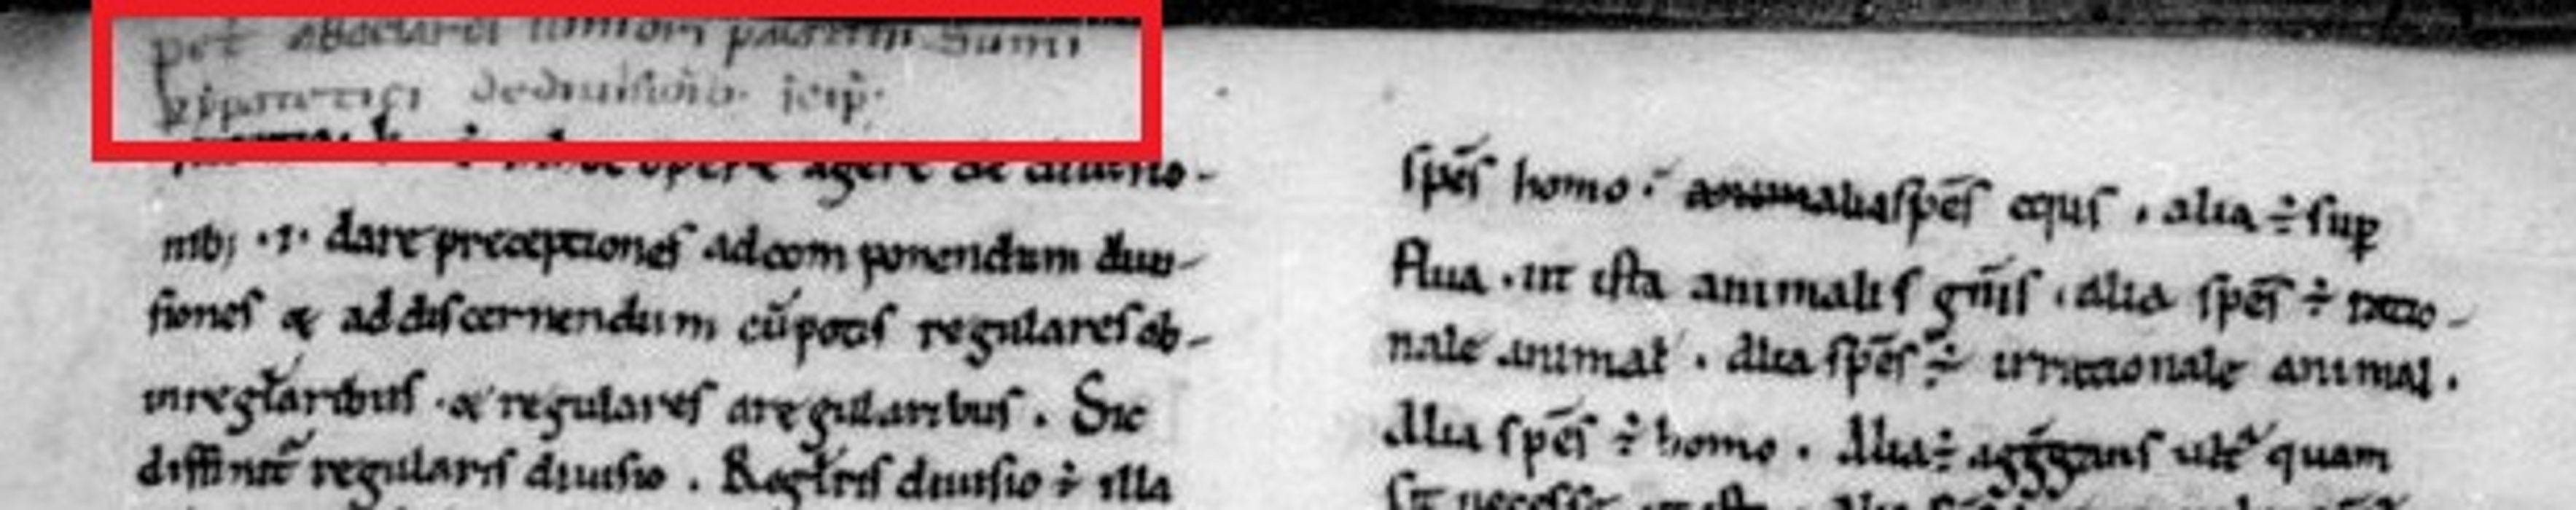 pet abaelardi iunioris palatini summi
peripatetici de diuisionib. icip.
opere agere de diuisio-
nib; .i. dare preceptiones ad componendum diui-
siones & ad discernendum cū potis regulares ab
inreglaribus . & regulares a regularibus . Sic
diffinit̄ regularis diuisio . Reglris diuisio ÷ illa
spēs homo . animalis spēs equs . alia ÷ sup
flua . ut ista animalis gn̄is . alia spēs ÷ ratio-
nale animal . alia spēs ÷ irrationale animal .
Alia spēs ÷ homo . Alia ÷ quam